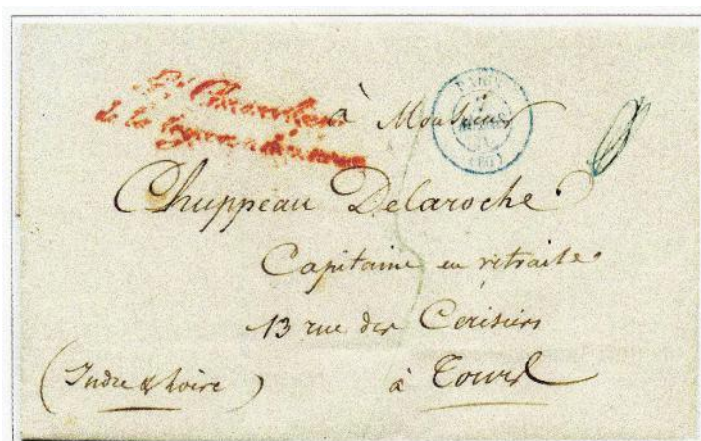 Gd Chancelier
de la Légion d'honneur
PARIS
(60)
à Monsieur
Chuppeau Delaroche
Capitaine en retraite
13 rue des Cerisiers
(Indre & Loire) à Tours